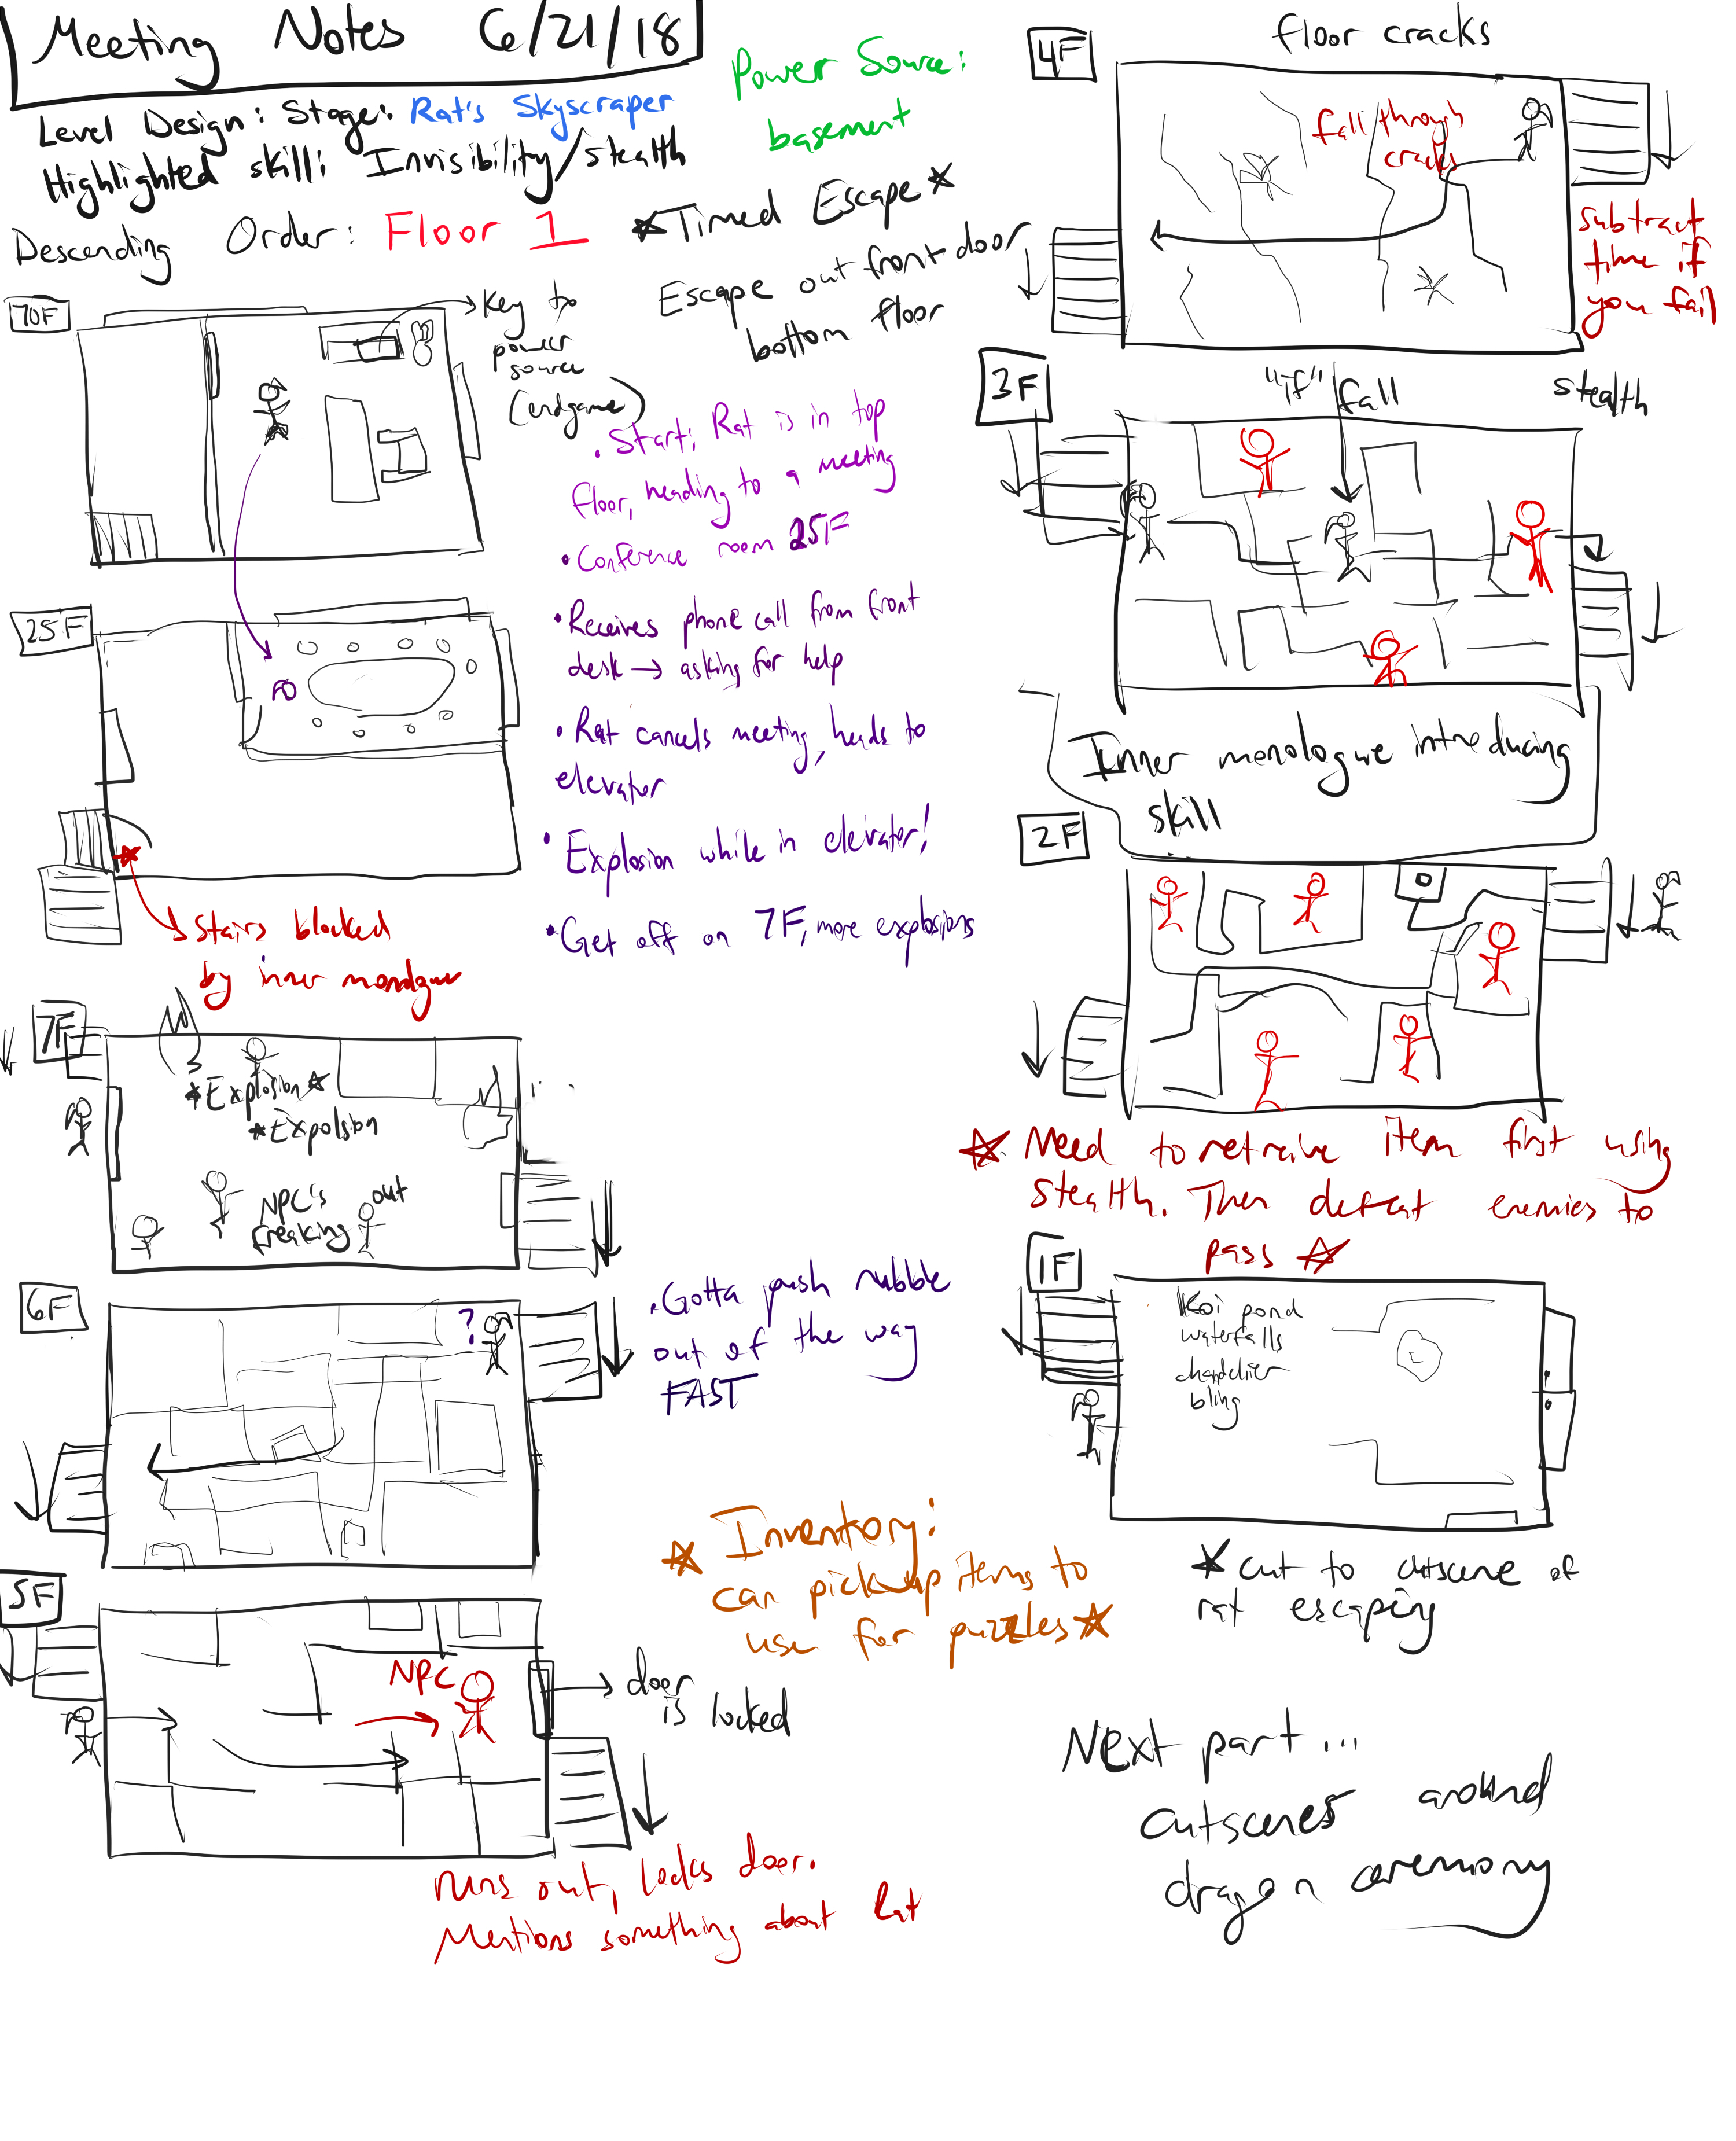 Meeting Notes 6/21/18
Level Design: Stage: Rat's Skyscraper
Highlighted skill: Invisibility/stealth
Descending Order: Floor 1
Power Source:
basement
★Timed Escape★
Escape out front door
bottom floor
70F
Key to
power
source
(endgame)
• Start: Rat is in top
floor, heading to a meeting
• Conference room 25F
• Receives phone call from front
desk → asking for help
• Rat cancels meeting, heads to
elevator
• Explosion while in elevator!
• Get off on 7F, more explosions
25F
Stairs blocked
by inner monologue
7F
★Explosion★
★Expolsion
NPC's
freaking out
6F
?
• Gotta push rubble
out of the way
FAST
★ Inventory:
can pick up items to
use for puzzles★
5F
NPC
door
is locked
runs out, locks door.
Mentions something about Rat
4F
floor cracks
fall through
cracks
subtract
time if
you fail
3F
"if" fall
stealth
Inner monologue introducing
skill
2F
★ Need to retreive item first using
stealth. Then defeat enemies to
pass ★
1F
Koi pond
waterfalls
chandelier
bling
★ cut to cutscene of
rat escaping
Next part...
cutscenes around
dragon ceremony